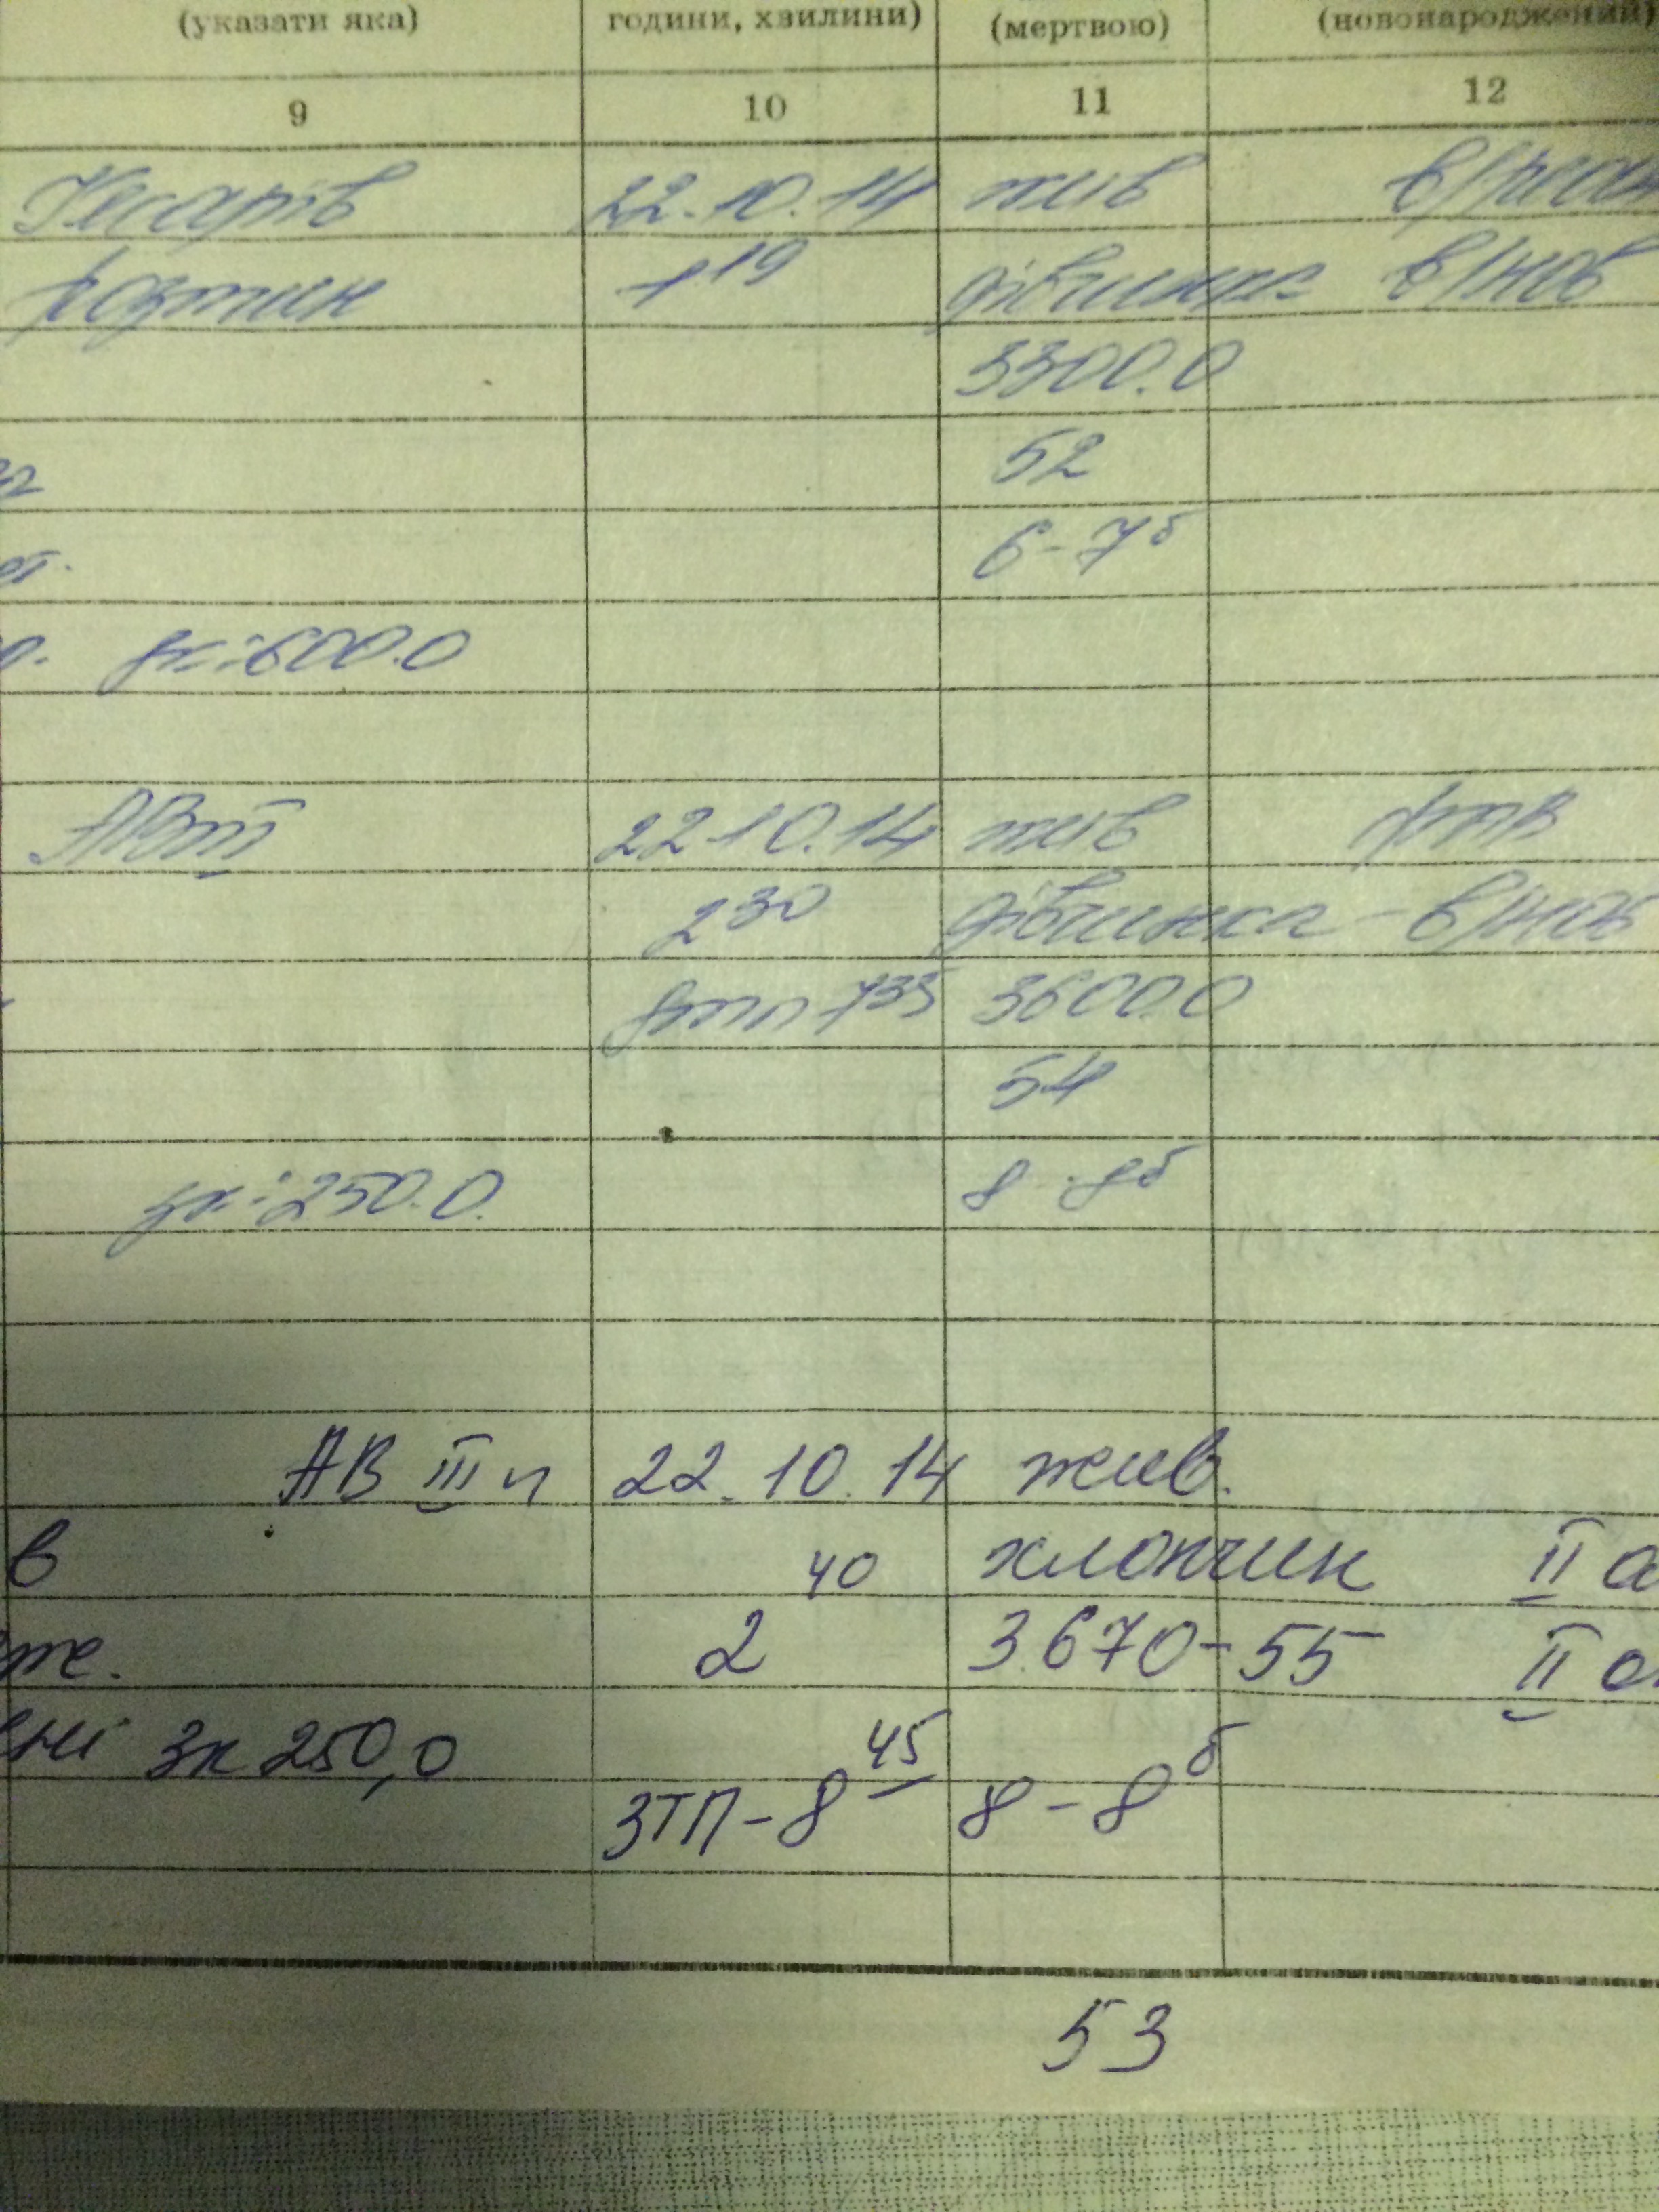 (указати яка) години, хвилини) (мертвою) (новонароджений)
9 10 11 12
Кесарів 22.10.14 жив
розтин 1 19 дівчинка в/нов
3300.0
52
6-7б
зк-600.0
22.10.14 жив
2 30 дівчинка - в/нов
7 35 3600.0
54
зк-250.0. 8-8б
АВ III п 22.10.14 жив.
в 40 хлопчик II
же. 2 3.670-55 II
зк 250,0 45
ЗТП-8 8-8б
53